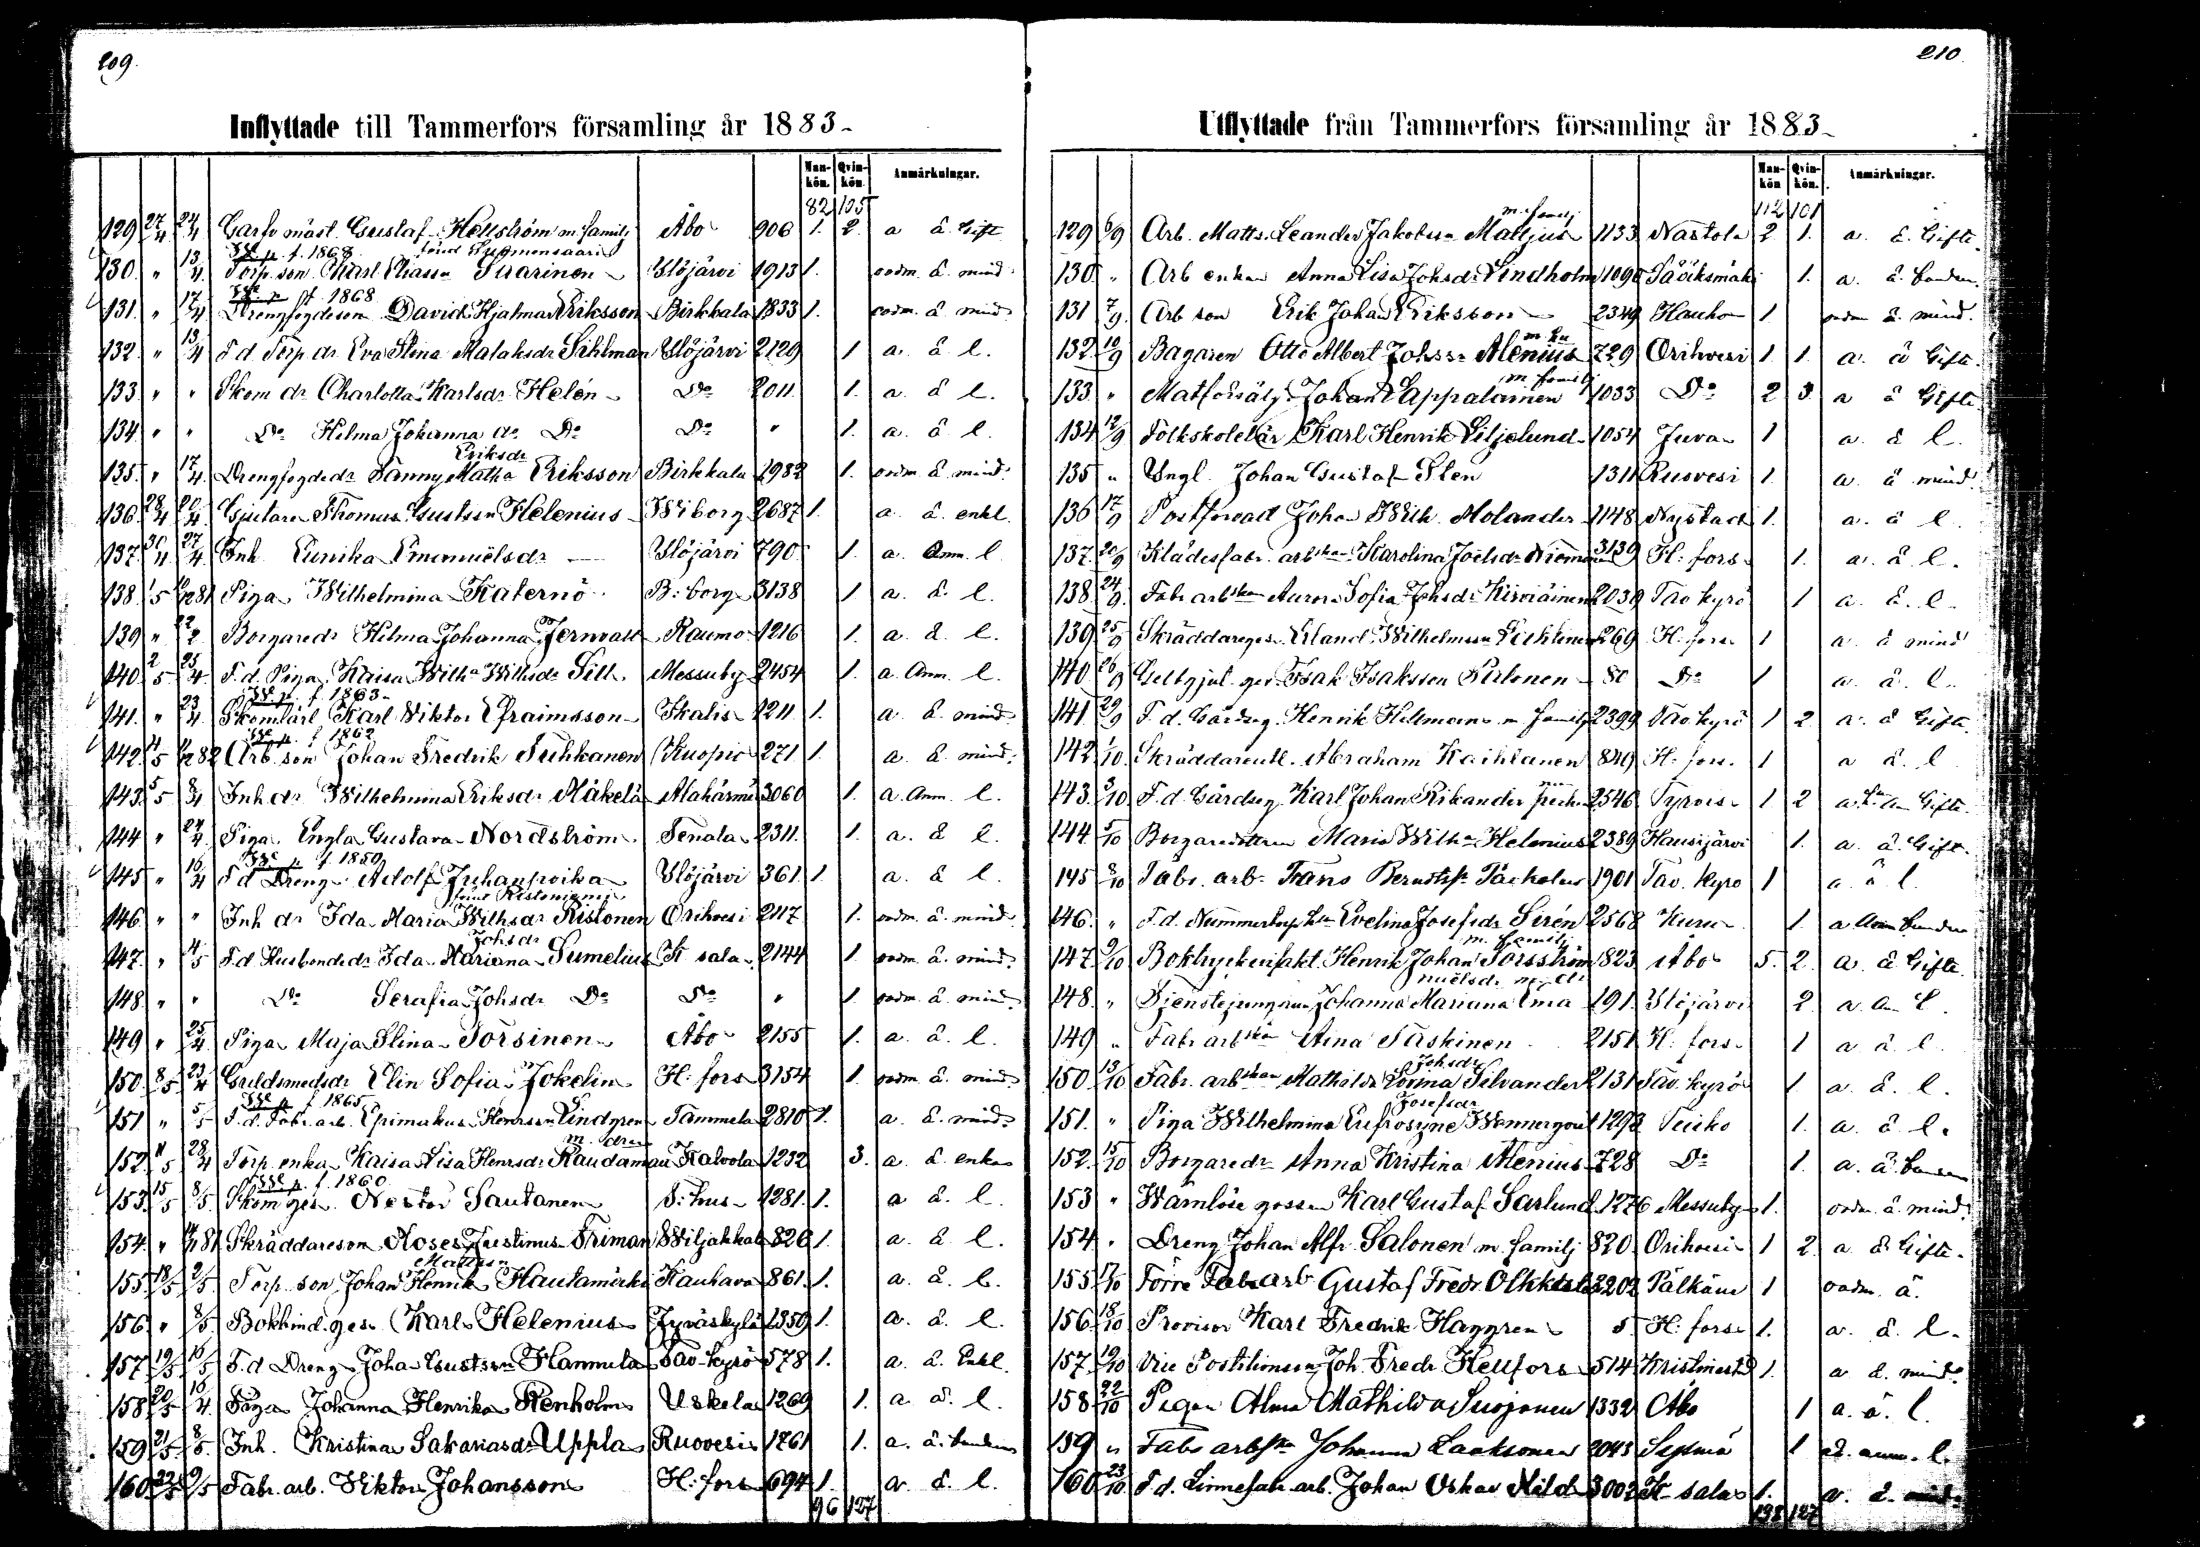 209.
Inflyttade till Tammerfors församling år 1883
Mankön. Qvinkön. Anmärkningar.
82 105
129 27/4 24/4 Garfv mäst. Gustaf Hellström m. familj Åbo 906 1. 2. a å Gift
f. 1868 född Suomensaari
130. " 13/4 Torp. son Karl Eliass. Saarinen Ylöjärvi 1913 1. ordm. å. mind.
f 1868
131. " 17/4 Drengfogdeson David Hjalmar Eriksson Birkkala 1833 1. ordm. å mind.
132. " 13/4 F.d. Torp. dr Eva Stina Malaksdr Sihlman Ylöjärvi 2129 1 a. å l.
133. " " Skom dr Charlotta Karlsdr Helén Do 2011 1. a. å l.
134. " " Do Hilma Johanna dr Do Do " 1. a. å l.
Eriksdr
135. " 17/4 Drengfogdedr Fanny Matha Eriksson Birkkala 1982 1. ordm å. mind.
136. 28/4 20/4 Gjutare Thomas Gustsson Helenius Wiborg 2687 1. a. å. enkl.
137. 30/4 27/4 Inh. Eunika Emanuelsdr — Ylöjärvi 790 1. a. Anm. l.
138. 1/5 81 Piga Wilhelmina Katernö B:borg 3138 1 a. å. l.
139 " 22/2 Borgaredr Hilma Johanna Jernvall Raumo 1216 1. a. å. l.
140. 2/5 25/4 F.d. Piga Kaisa Wilha Wilhsdr Sill. Messuby 2454 1. a. Anm. l.
f 1863
141. " 23/4 Skomlärl Karl Viktor Efraimsson Ikalis 1211 1. a å. mind.
f 1862
142. 4/5 82 Arb. son Johan Fredrik Tuhkanen Kuopio 271 1. a å. mind.
143. 5/5 3/4 Inh. dr Wilhelmina Eriksdr Mäkelä Alahärmä 3060 1. a. Anm. l.
144 " 24/4 Piga Engla Gustava Nordström Tenala 2311 1. a. å l.
f. 1850
145 " 16/4 F d Dreng Adolf Juhanpoika Ylöjärvi 361 1 a. å l.
146 " " Inh dr Ida Maria Wilhsdr Ristonen Orihvesi 2117 1. ordm. å. mind.
Johsdr
147. " 4/5 F.d Husbondedr Ida Mariana Sumelius K sala 2144 1. ordm. å. mind.
148 " " Do Serafia Johsdr Do Do " 1. ordm. å. mind.
149 " 25/4 Piga Maja Stina Torsinen Åbo 2155 1. a. å. l.
150. 8/5 23/4 Guldsmedsdr Elin Sofia Jokelin H:fors 3154 1. ordm. å. mind.
f 1865
151 " 5/5 F.d. Fabr. arb. Epimakus Henrsson Lindgren Tammela 2810 1. a. å mind.
m. drar
152. 11/5 28/4 Torp. enka Kaisa Lisa Henrsdr Raudanau Kalvola 1232 3. a. å. enka
f. 1860
153. 15/5 8/5. Skom ges. Nestor Sautanen T:hus 1281. 1. a å. l.
154. " 81 Skräddareson Moses Justinus Friman Wiljakkala 826 1. a. å l.
Mattsson
155 18/5 2/5. Torp. son Johan Henrik Hautamäki Kauhava 861. 1. a. å. l.
156 " 8/5. Bokbind. ges. Karl Helenius Jyväskylä 1359 1. a. å. l.
157 19/5 16/5 F.d Dreng Joha Gustsson Hannula Tav-kyrö 578 1. a. å. Enkl.
158 20/5 16/4. Piga Johanna Henrika Renholm Uskela 1269 1. a å. l.
159 21/5 8/5. Inh. Kristina Sakariasdr Uppla Ruovesi 1761 1. a. å. bunden
160 22/5 9/5 Fabr. arb. Viktor Johansson H:fors 694 1. a å. l.
96 127
210.
Utflyttade från Tammerfors församling år 1883
Mankön Qvinkön. Anmärkningar.
112 101
m. familj
129 6/9 Arb. Matts Leander Jakobsson Mattjus 1133 Nastola 2 1. a. å. Gifte
130. " Arb enkan Anna Lisa Johsdr Lindholm 1090 Sääksmäki 1. a. å. bunden
131 7/9. Arb son Erik Johan Eriksson 2349 Hauho 1 ordm å. mind.
m hu
132. 10/9 Bagaren Otto Albert Johsson Alenius 729 Orihvesi 1 1. a. å Gifte.
m familj
133. " Matförsälj. Johan Lappalainen 1033 Do 2 3. a å Gifte
134 12/9 Folkskolelär Karl Henrik Liljelund 1054 Juva 1 a. å l.
135 " Yngl. Johan Gustaf Sten 1311 Ruovesi 1. a. å mind.
136 17/9 Postförvalt Johan Wilh. Molander 1148 Nystad 1. a. å l.
137. 20/9 Klädesfabr. arbskan Karolina Joelsdr Nieminen 3139 H:fors 1. a. å l.
138 24/9. Fabr arbskan Aurora Sofia Johsdr Kiviäinen 2030 Tav kyrö 1 a. å. l.
139. 25/9 Skräddareges. Erland Wilhelmsson Lehtinen 269 H:fors 1 a. å mind
140 26/9 Gelbgjut. ges. Isak Isaksson Pulonen 80 Do 1 a. å. l.
141. 29/9 F.d. Gårdeg. Henrik Hellmoens m familj 2399 Tav kyrö 1 2. a. å Gifte.
142. 1/10. Skräddareutl. Abraham Kaihlanen 849 H:fors. 1 a å. l.
143. 3/10 F.d. Gårdseg. Karl Johan Rikander 2346 Tyrvis 1 2 a. Gifte.
144. 5/10 Borgaredottren Maria Wilha Helenius 2389 Hausijärvi 1. a. å. Gift.
145 8/10 Fabr. arb. Frans Berndtss. 1901 Tav. kyro 1 a. å l.
146. " F.d. Evelina Josefsdr Sirén 2568 Kuru 1. a Anm bunden
m. familj
147. 9/10 Boktryckerifakt. Henrik Johan Forsström 823 Åbo 5. 2. a. å Gifte.
148. " Tjenstejungfrun Johanna Mariana 191. Ylöjärvi 2. a. An. l.
149 " Fabr arbskan Aina Taskinen 2151 H:fors 1 a å l.
Johsdr
150. 13/10 Fabr. arbskan Mathilda Lovisa Silvander 2131 Tav kyrö 1 a. å. l.
Josefsdr
151. " Piga Wilhelmina Eufrosyne Wennergren 1293 Teisko 1. a. å l.
152. 15/10 Borgaredr Anna Kristina Alenius 728 Do 1. a. å bunden
153 " Wärnlöse gossen Karl Gustaf Sarlund 1276 Messuby 1. ordm. å mind.
154. " Dreng Johan Alfr. Salonen m. familj 820 Orihvesi 1 2. a å Gifte.
155. 17/10 Förre Fabr arb Gustaf Fredr. Olkkola 3202 Pälkäne 1 ordm. å.
156. 18/10 Provisor Karl Fredrik Haggren 5 H:fors 1. a. å. l.
157. 19/10 Vice Postiljonen Joh Fredr Hellfors 514 Kristinestd 1. a å. mind.
158 22/10 Pigan Alma Mathilda Suojanen 1332 Åbo 1 a. å. l.
159 " Fabr arbska Johanna Laaksonen 2043 Sysmä 1 ad. anm. l.
160 23/10 F.d. Linnefabr. arb. Johan Oskar Mild 3002 K sala 1. a. å. mind.
138 127